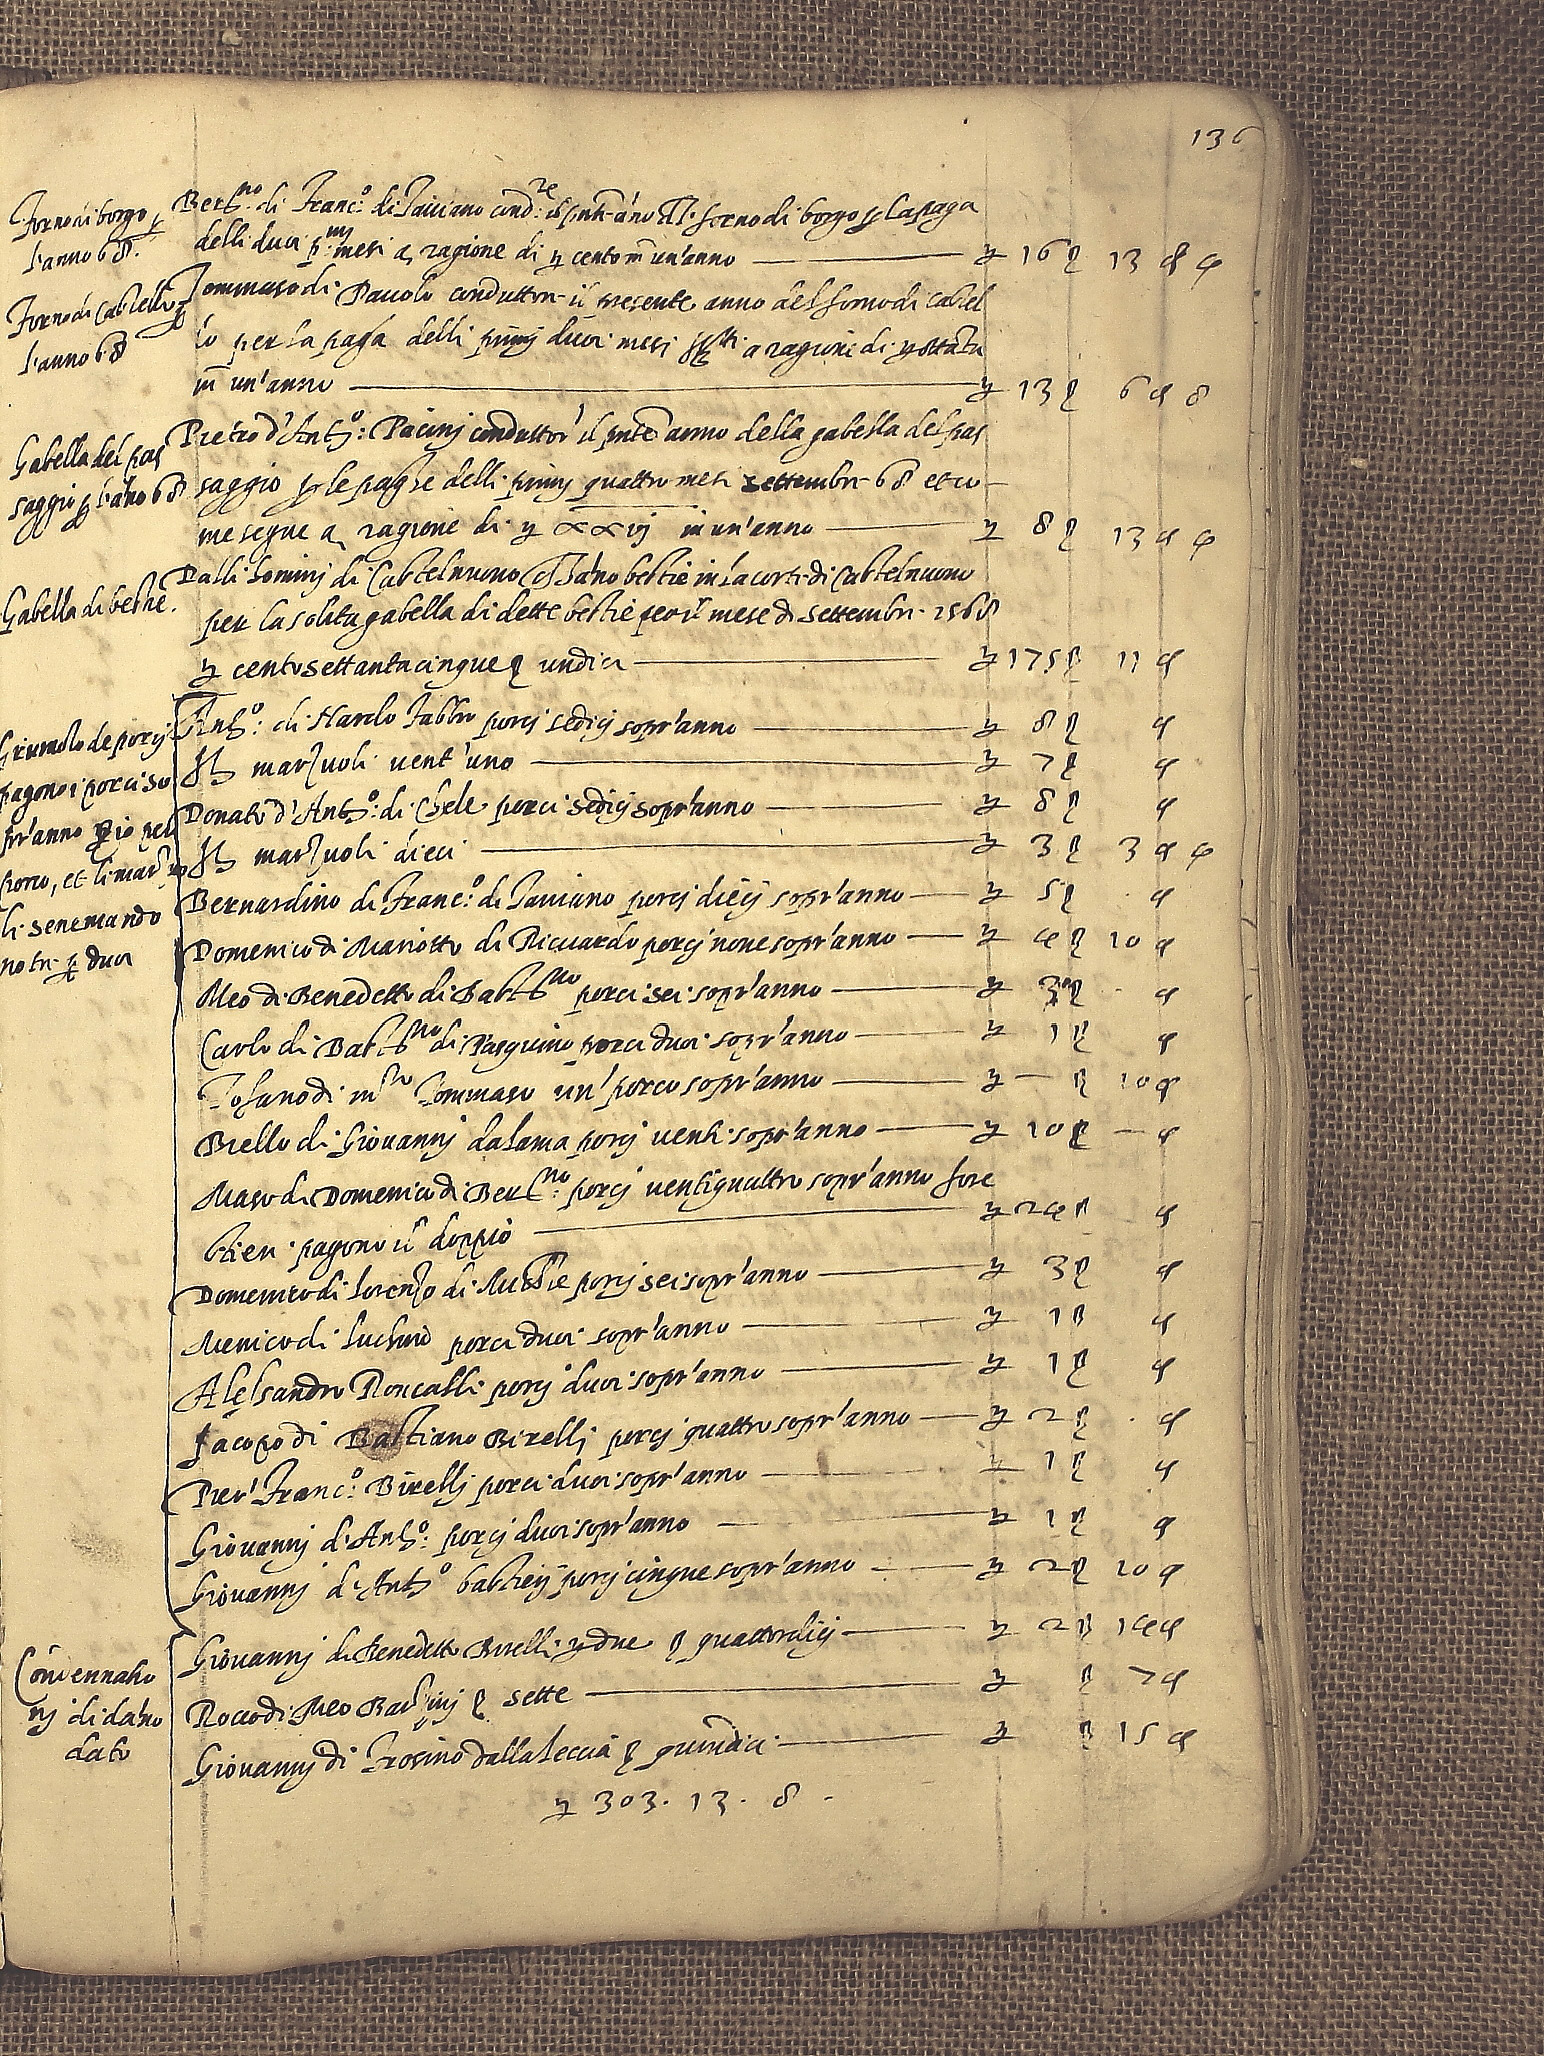 136
Forno di borgo p
l'anno 68.
Bert.no di Franc.o di Taviano cond.re il pnte anno del forno di borgo p la paga
delli duoi p.mi mesi a ragione di £ cento in un'anno £ 16 ß 13 d 4
Forno di Castello p
l'anno 68
Tommaso di Pavolo conduttor il presente anno del forno di Castel
lo per la paga delli primj duoi mesi a ragione di £ ottanta
in un'anno £ 13 ß 6 d 8
Gabella del pas
saggio p l'anno 68
Pietro d'Ant.o: Pacinj conduttor' il pnte anno della gabella del pas
saggio p le paghe delli primj quattro mesi settembr 68 et co-
me segue a ragione di £ xxvj in un'anno £ 8 ß 13 d 4
Gabella di bestie.
Dalli hominj di Castelnuovo c'hano bestie in la corte di Castelnuovo
per la solita gabella di dette bestie per il mese di settembr 1568
£ cento settantacinque ß undici £ 175 ß 11 d
Grumolo de porcj
pagono i porci so
pr'anno ß 10 pel
porco, et li marzuo
li se ne mando
no tr p duoi
Ant.o: di Nardo fabbro porcj sedicj sopr'anno £ 8 ß d
marzuoli vent'uno £ 7 ß d
Donato d'Ant.o: di Chele porci sedicj sopr'anno £ 8 ß d
marzuoli dieci £ 3 ß 3 d 4
Bernardino di Franc.o: di Taviano porcj diecj sopr'anno £ 5 ß d
Domenico di Mariotto di Riccardo porcj nove sopr'anno £ 4 ß 10 d
Meo di Benedetto di Bart.no porci sei sopr'anno £ 3 ß d
Carlo di Bart.no di Pasquino porci duoi sopr'anno £ 1 ß d
Tofano di m.ro Tommaso un' porco sopr'anno £ — ß 10 d
Briello di Giovannj dalama porcj venti sopr'anno £ 10 ß — d
Maso di Domenico di Ber.no: porcj ventiquattro sopr'anno fore
stieri pagono il doppio £ 24 ß d
Domenico di Lorenzo di porcj sei sopr'anno £ 3 ß d
Menico di Luchino porci duoi sopr'anno £ 1 ß d
Alessandro Roncalli porcj duoi sopr'anno £ 1 ß d
Jacopo di Bastiano Birellj porcj quattro sopr'anno £ 2 ß d
Pier' Franc.o: Birellj porci duoi sopr'anno £ 1 ß d
Giovannj d'Ant.o: porcj duoi sopr'anno £ 1 ß d
Giovannj d'Ant.o bastierj porcj cinque sopr'anno £ 2 ß 10 d
Condennatio
nj di dano
dato
Giovannj di Benedetto Birelli £ due ß quattordicj £ 2 ß 14 d
Rocco di Meo ß sette £ ß 7 d
Giovannj di Frosino dalla leccia ß quindici £ ß 15 d
£ 303. 13. 8.